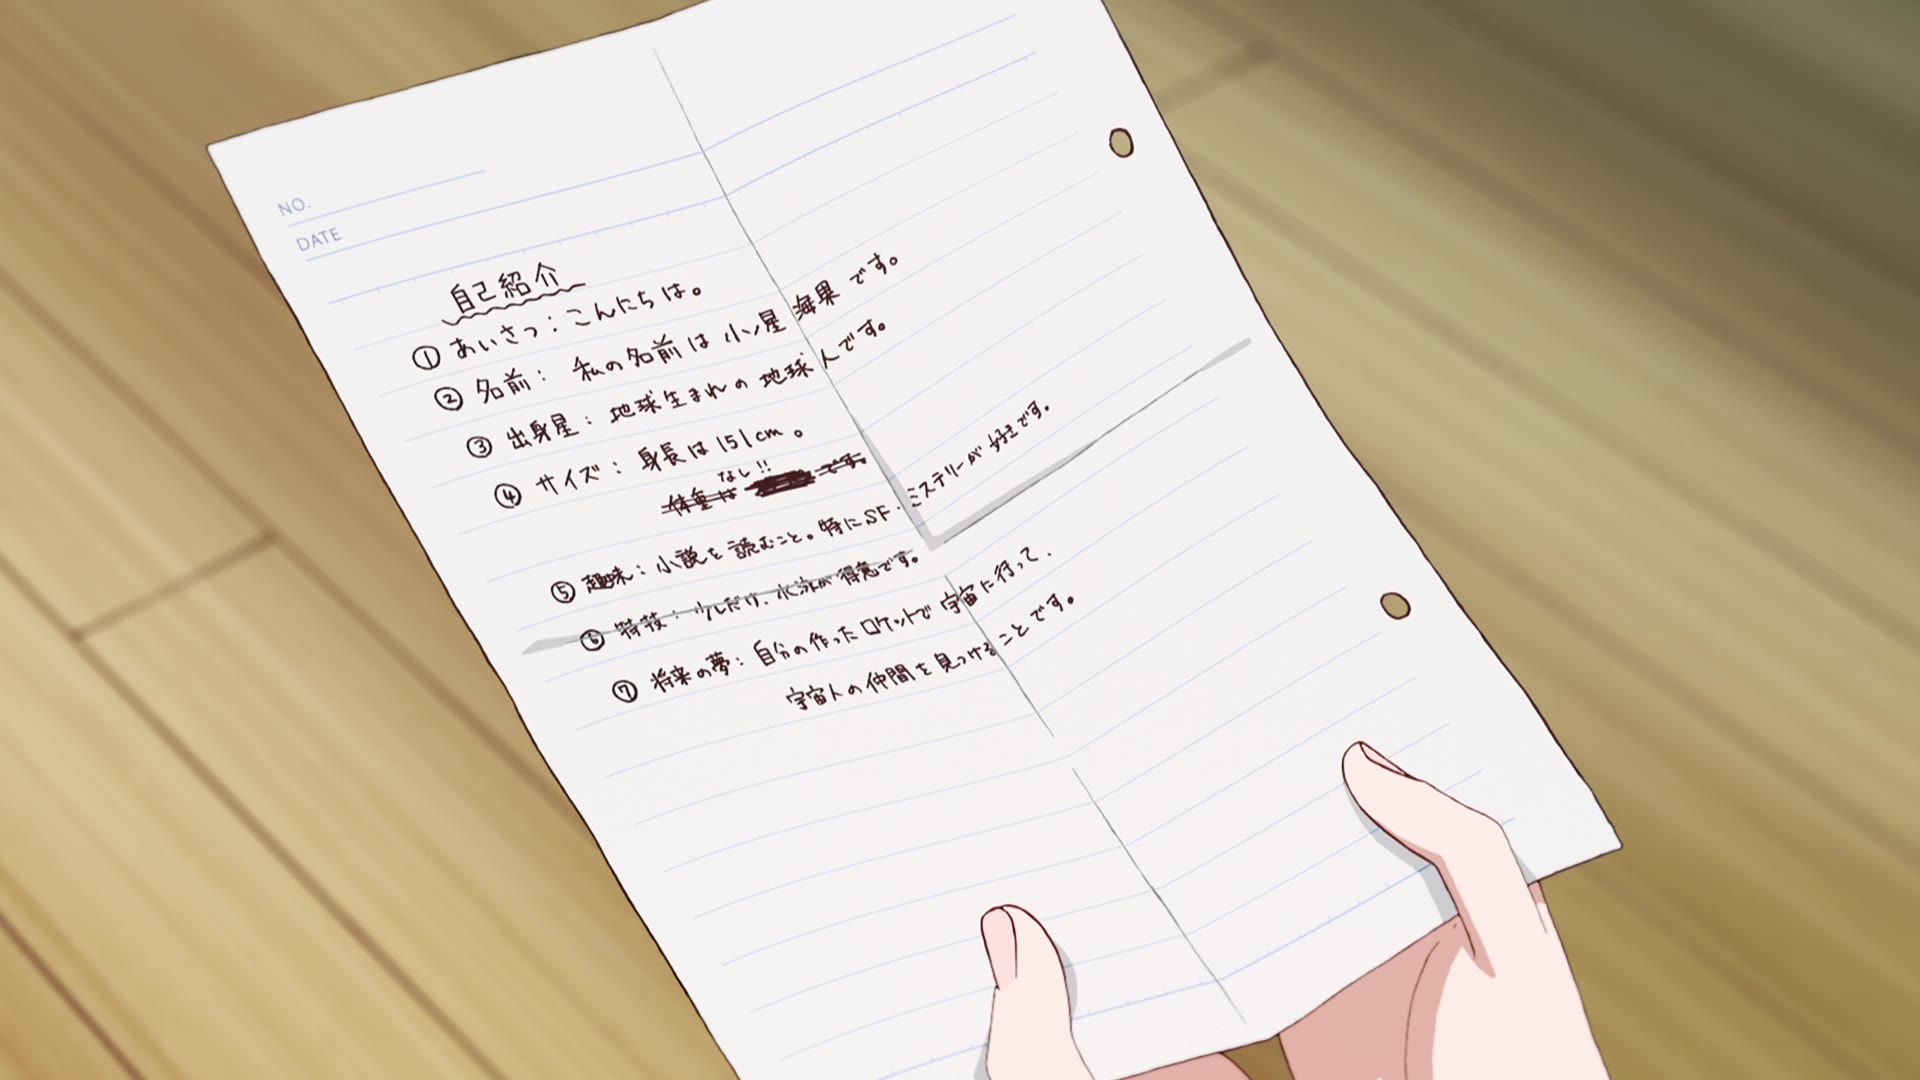 NO.
DATE
自己紹介
① あいさつ：こんにちは。
② 名前：私の名前は小ノ星海果です。
③ 出身星：地球生まれの地球人です。
④ サイズ：身長は151cm。
なし!!
体重は です。
⑤ 趣味：小説を読むこと。特にSF・ミステリーが好きです。
⑥ 特技：少しだけ、水泳が得意です。
⑦ 将来の夢：自分の作ったロケットで宇宙に行って、
宇宙人の仲間を見つけることです。